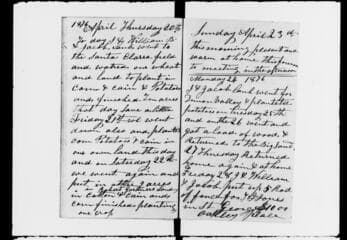 1876 April Thursday 20th
To day J & William B
& Jacob went to
the Santa Clara field
and watered our wheat
and land to plant in
corn & cain & Potatoes
and finished two acres
that day Saw a letter
Friday 21st we went
down also and planted
corn Potatoes & cain in
our own land this day
and on Saterday 22th
we went again and
put in other 2 acres
in cotton & cain and
corn finished planting
our crop
Sunday April 23d
this morning pleasent and
warm at home this forenoon
to meeting in the afternoon
Monday 24 1876
J & Jacob went for
Timber valley & planted the
potatoes on tuesday 25th
and on the 26 went and
got a load of wood &
Returned to the Big Sand
27 Thursday Returned
home again & at home
Friday 28 J & William
& Jacob put up 8 Rod
of fence for
in St George
place